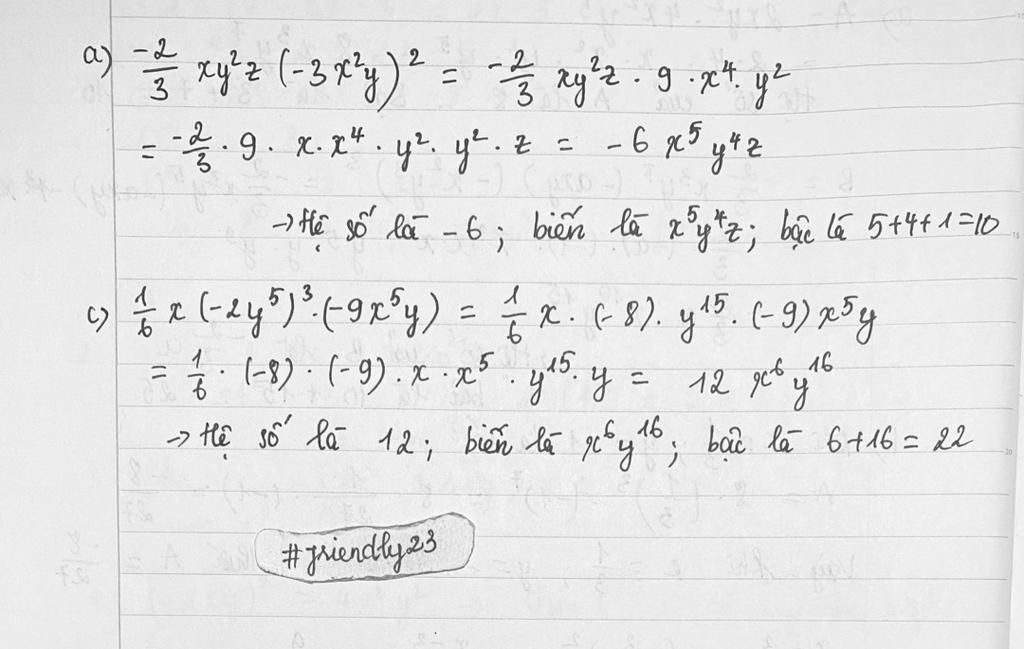 a) -2/3 xy²z (-3x²y)² = -2/3 xy²z · 9 · x⁴ · y²
= -2/3 · 9 · x · x⁴ · y² · y² · z = -6 x⁵y⁴z
→ Hệ số là -6; biến là x⁵y⁴z; bậc là 5+4+1=10
c) 1/6 x (-2y⁵)³ · (-9x⁵y) = 1/6 x · (-8) · y¹⁵ · (-9) x⁵y
= 1/6 · (-8) · (-9) · x · x⁵ · y¹⁵ · y = 12 x⁶y¹⁶
→ Hệ số là 12; biến là x⁶y¹⁶; bậc là 6+16 = 22
#friendly23